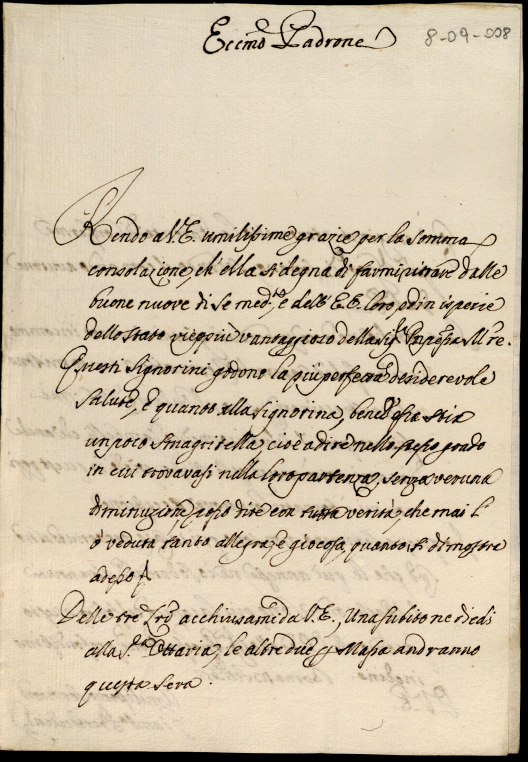 Eccmo Padrone
8-09-008
Rendo a V.E. umilissime grazie per la somma
consolazione, ch'ella si degna di farmi pitrare dalle
buone nuove di se medma, e dell'E.E. Loro, ed in ispezie
dello stato vieppiù vantaggioso della Sigra Pnpessa Mre.
Questi Signorini godono la più perfetta desiderevole
salute, e quanto alla Signorina, benchè sia stia
un poco smagritella, cioè a dire nello stesso grado
in cui trovavasi nella loro partenza, senza veruna
diminuzione, posso dire con tutta verità, che mai l'
ò veduta tanto allegra, e giocosa, quanto si dimostra
adesso.
Delle tre Lre acchiusami da V.E., una subito ne diedi
alla Sra Vttaria, le altre due p Massa andranno
questa sera.